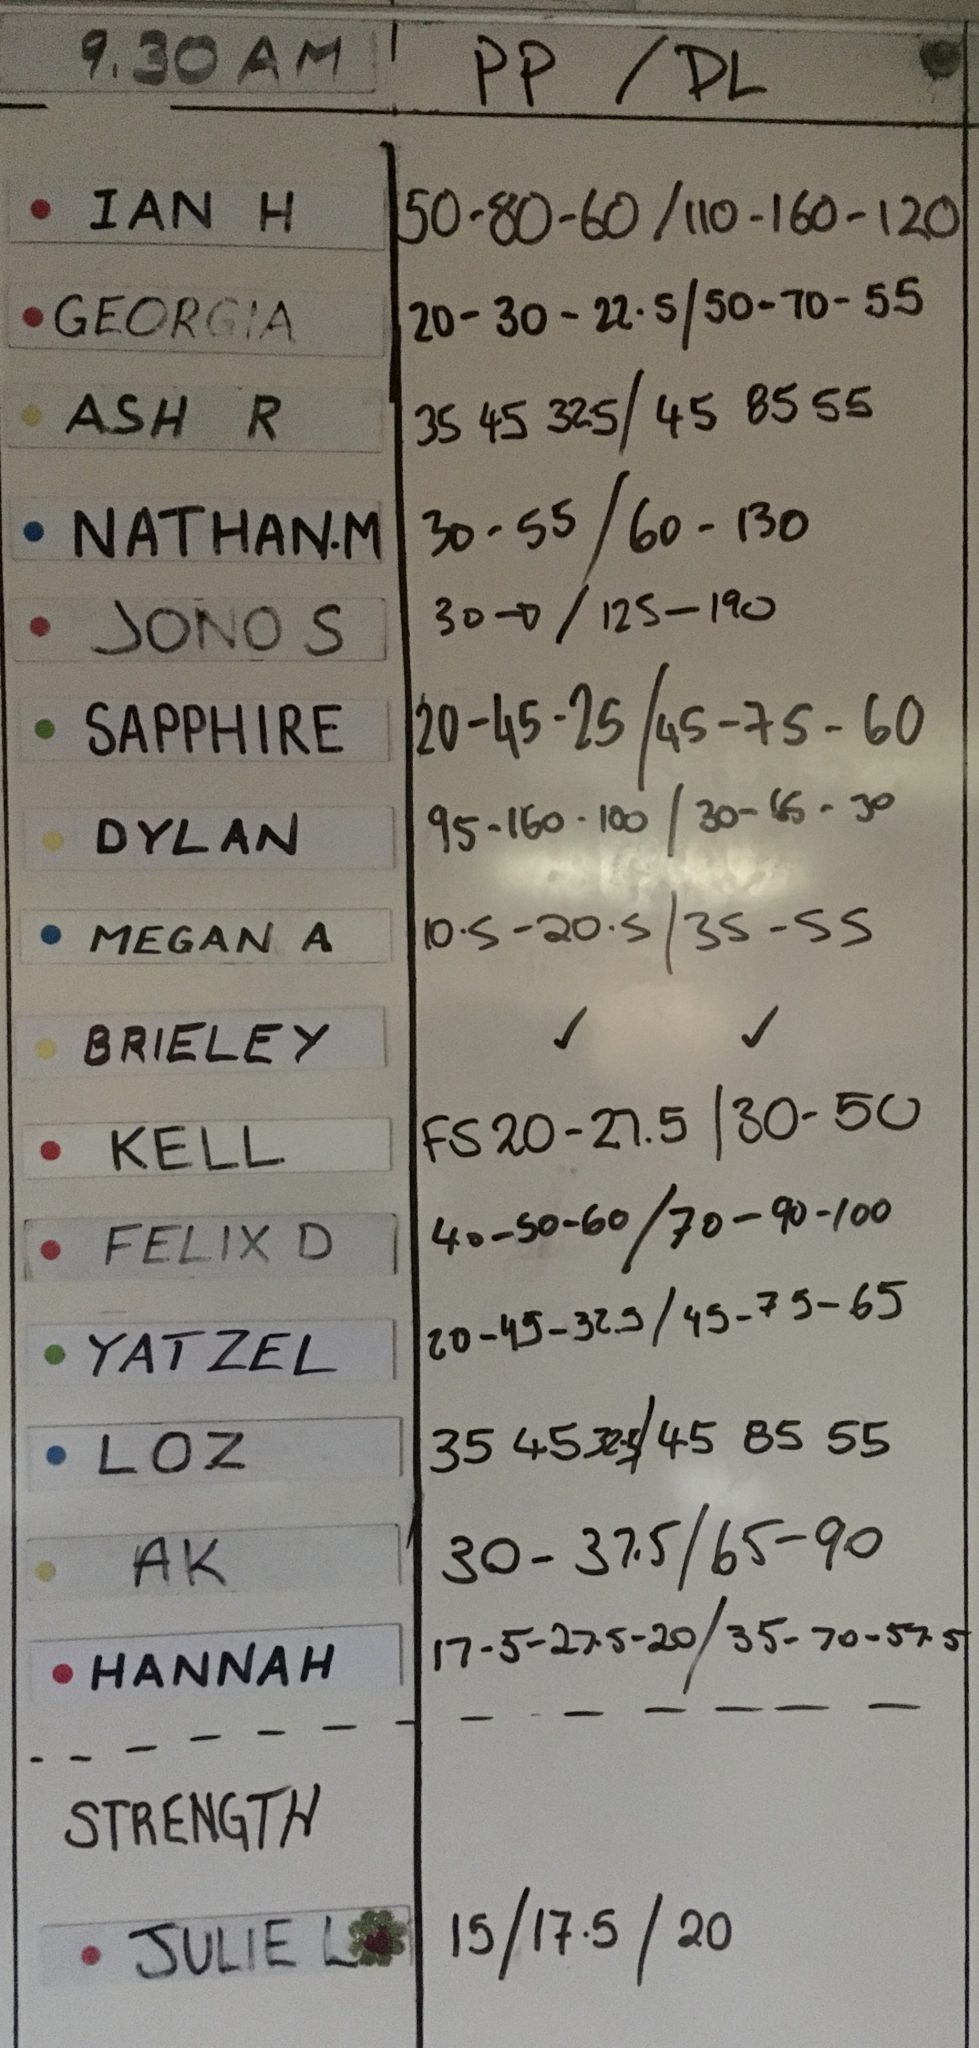 9.30 AM PP / DL
IAN H 50-80-60 / 110-160-120
GEORGIA 20-30-22.5/50-70-55
ASH R 35 45 32.5/ 45 85 55
NATHAN.M 30-55 / 60-130
JONO S 30-0 / 125-190
SAPPHIRE 20-45-25 / 45-75-60
DYLAN 95-160-100 / 30-65-30
MEGAN A 10.5-20.5 / 35-55
BRIELEY ✓ ✓
KELL FS 20-27.5 / 30-50
FELIX D 40-50-60 / 70-90-100
YATZEL 20-45-32.5 / 45-75-65
LOZ 35 45 32.5/ 45 85 55
AK 30-37.5/65-90
HANNAH 17-5-27.5-20 / 35-70-57.5
STRENGTH
JULIE L 15/17.5/20